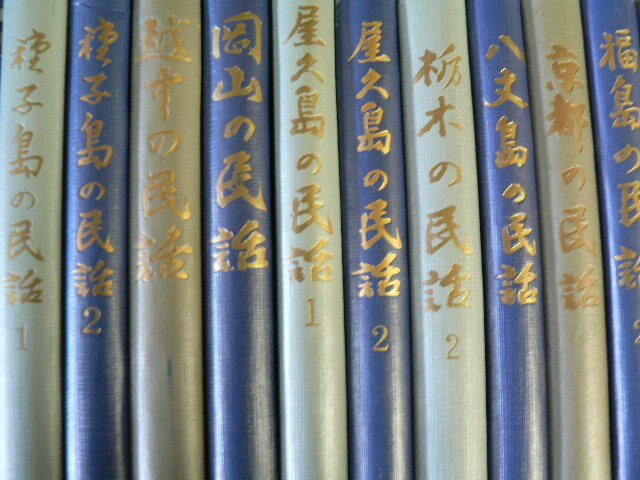 種子島の民話 1
種子島の民話 2
越中の民話
岡山の民話
屋久島の民話 1
屋久島の民話 2
栃木の民話 2
八丈島の民話
京都の民話
福島の民話 2